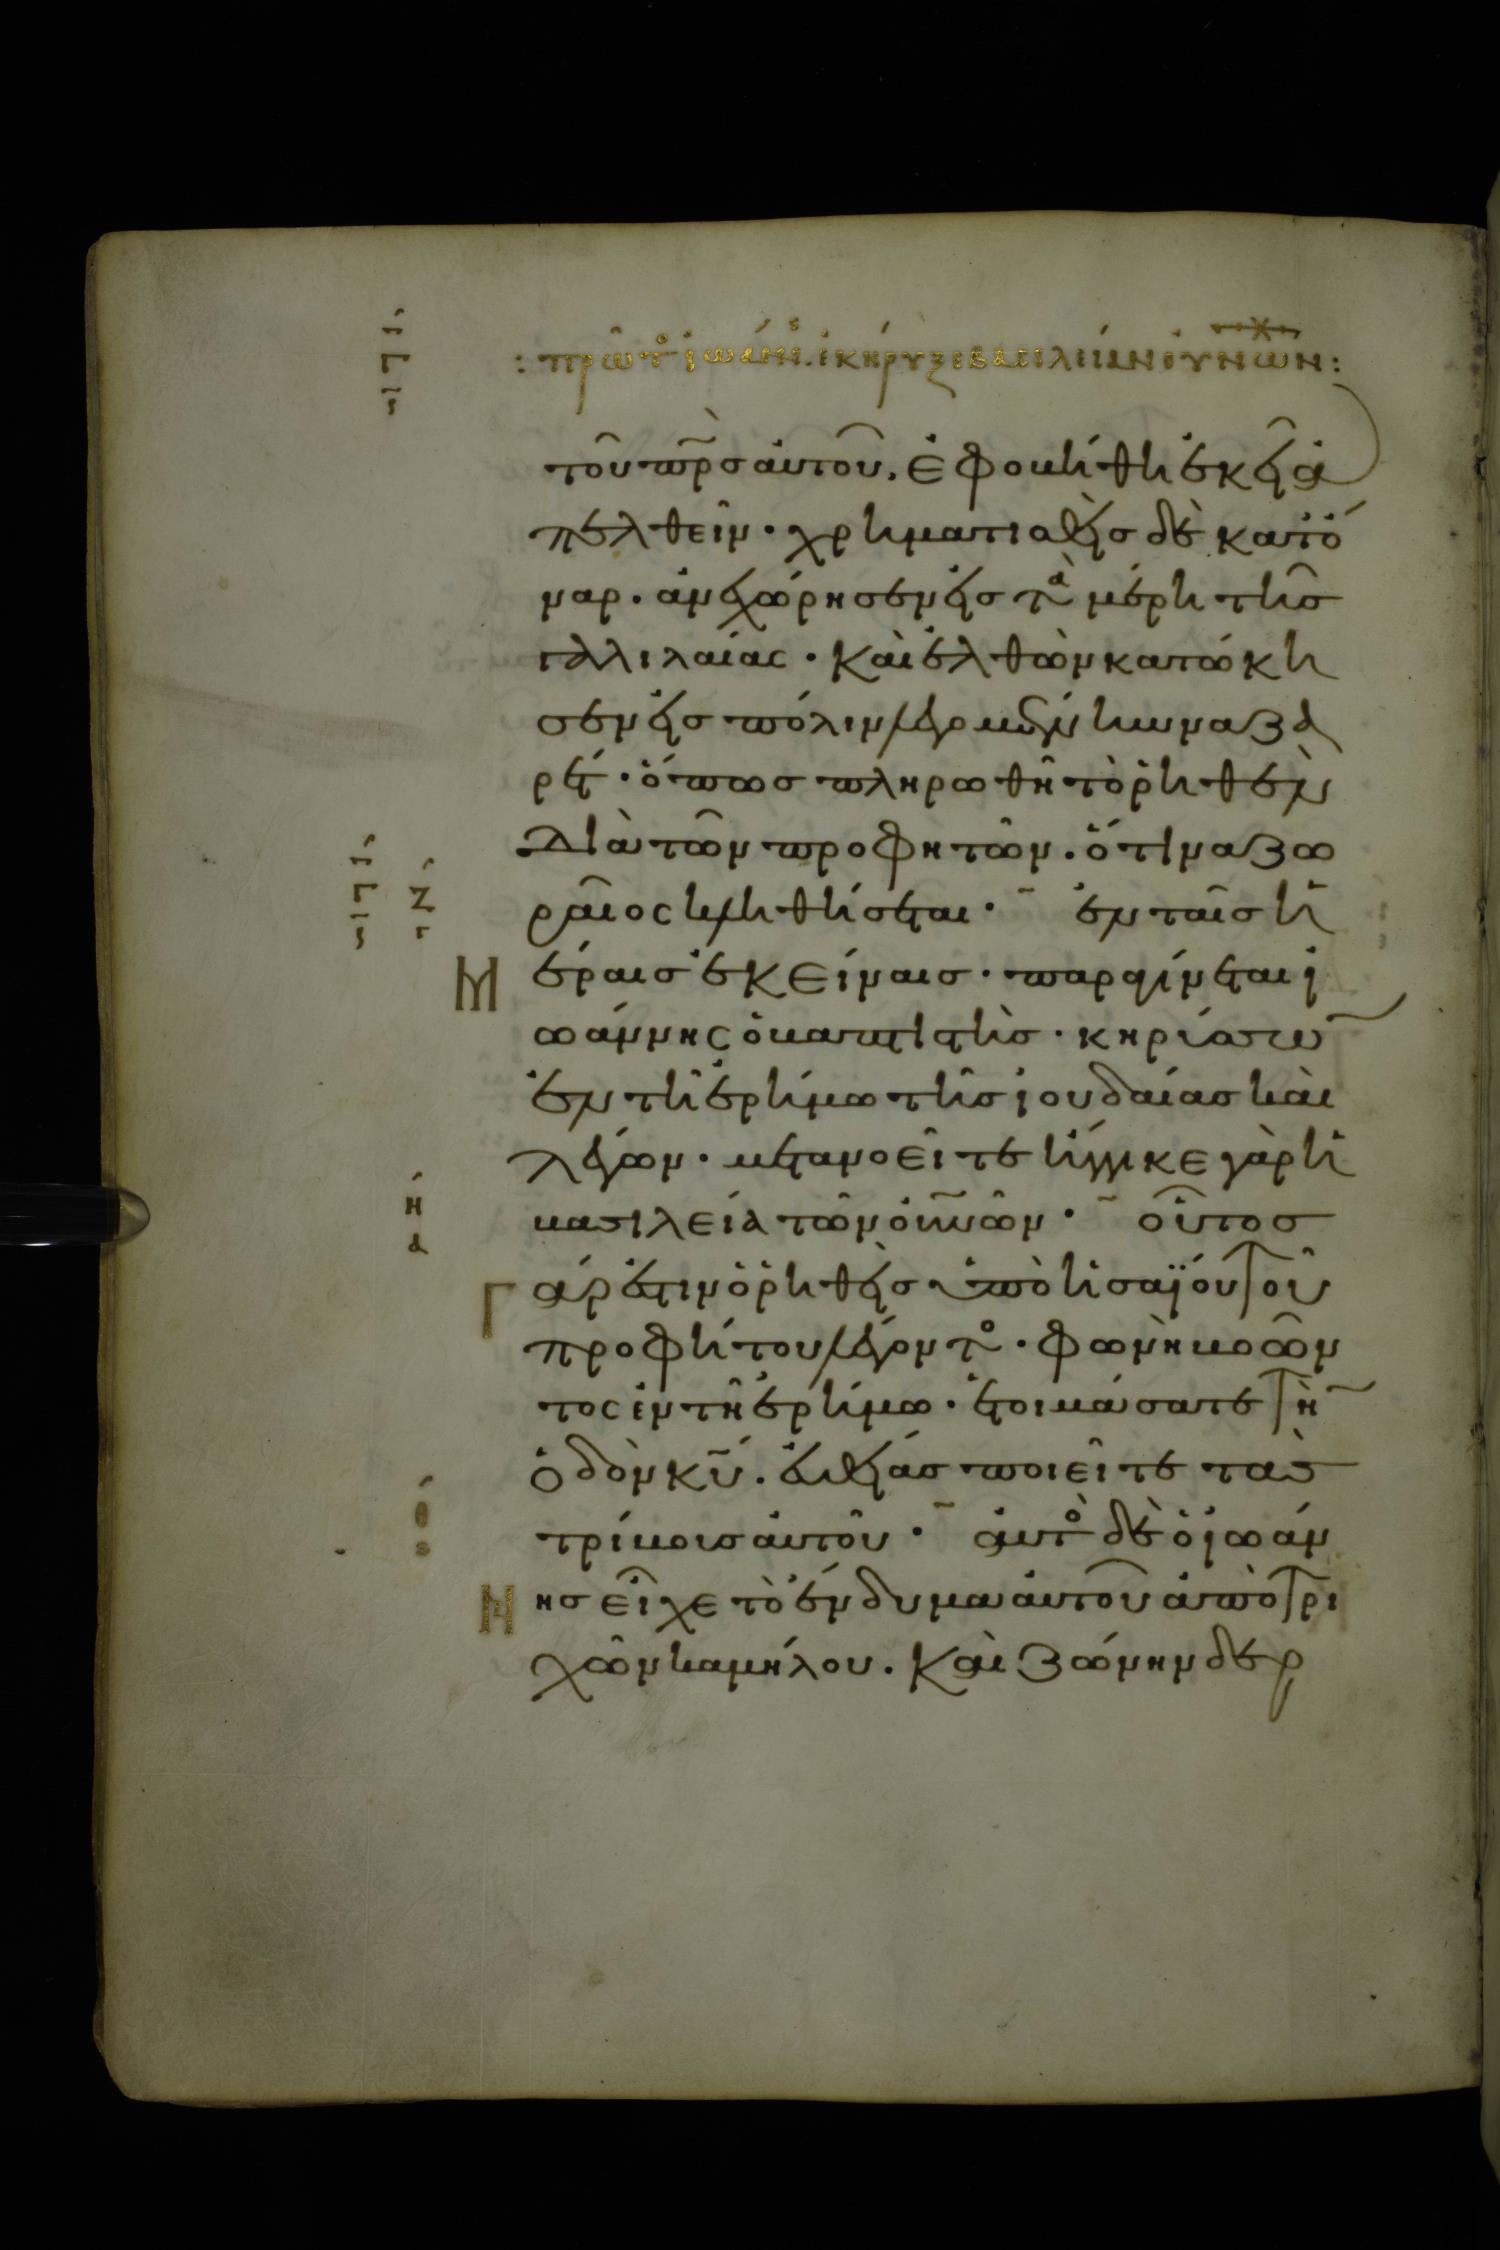 : πρῶτ ἰωάνν. ἐκήρυξε βασιλείαν ουνων :
τοῦ πρ̅σ αὐτοῦ. ἐφοβήθη ἐκεῖ ἀ
πελθεῖν · χρηματισθεὶς δὲ κατ ὄ
ναρ · ἀνεχώρησεν εἰς τὰ μέρη τῆς
γαλιλαίας · καὶ ἐλθὼν κατώκη
σεν εἰς πόλιν λεγομένην ναζα
ρέτ · ὅπως πληρωθῆ τὸ ῥηθὲν
διὰ τῶν προφητῶν · ὅτι ναζω
ραῖος κληθήσεται · ἐν ταῖς ἡ
μέραις ἐκείναις · παραγίνεται ἰ
ωάννης ὁ βαπτιστὴς · κηρύσσω
ἐν τῆ ἐρήμω τῆς ἰουδαίας καὶ
λέγων · μετανοεῖτε ἤγγικε γὰρ ἡ
βασιλεία τῶν οὐν̅ων · οὗτος
γάρ ἐστιν ὁ ῥηθεὶς ὑπὸ ἡσαΐου τοῦ
προφήτου λέγοντο · φωνὴ βοῶν
τος ἐν τῆ ἐρήμω · ἑτοιμάσατε τὴ
ὁδὸν κ̅υ · εὐθείας ποιεῖτε τὰς
τρίβους αὐτοῦ · αὐτὸ δὲ ὁ ἰωάν
νης εἶχε τὸ ἔνδυμα αὐτοῦ ἀπὸ τρι
χῶν καμήλου · καὶ ζώνην δερ
ζ
η
α
θ
ς